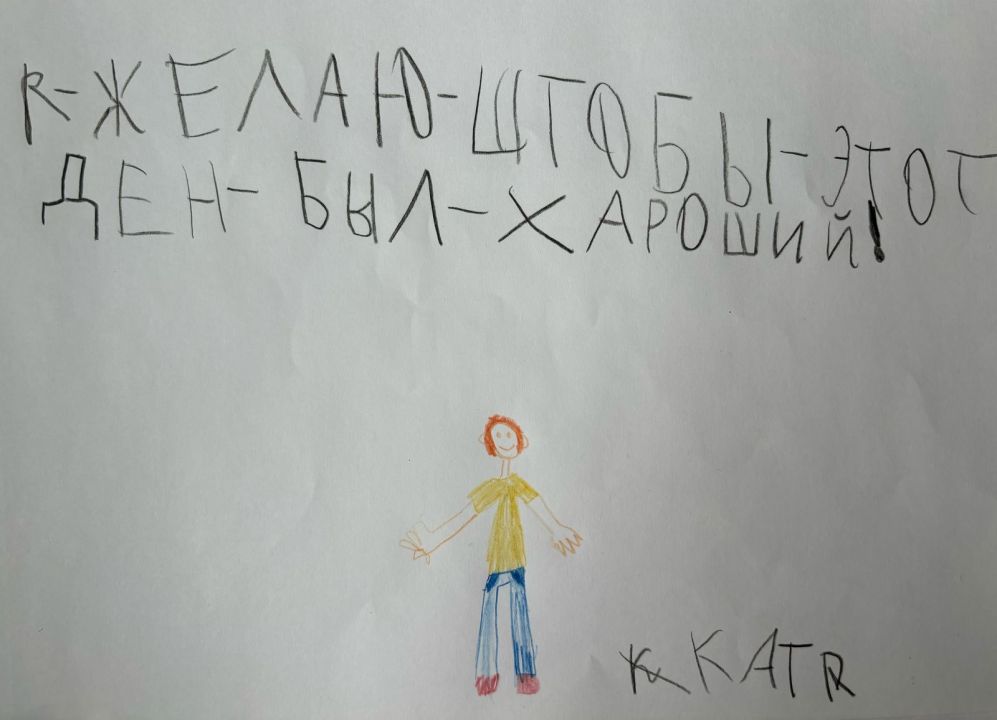 Я-ЖЕЛАЮ-ШТОБЫ-ЭТОТ
ДЕН-БЫЛ-ХАРОШИЙ!
КАТЯ